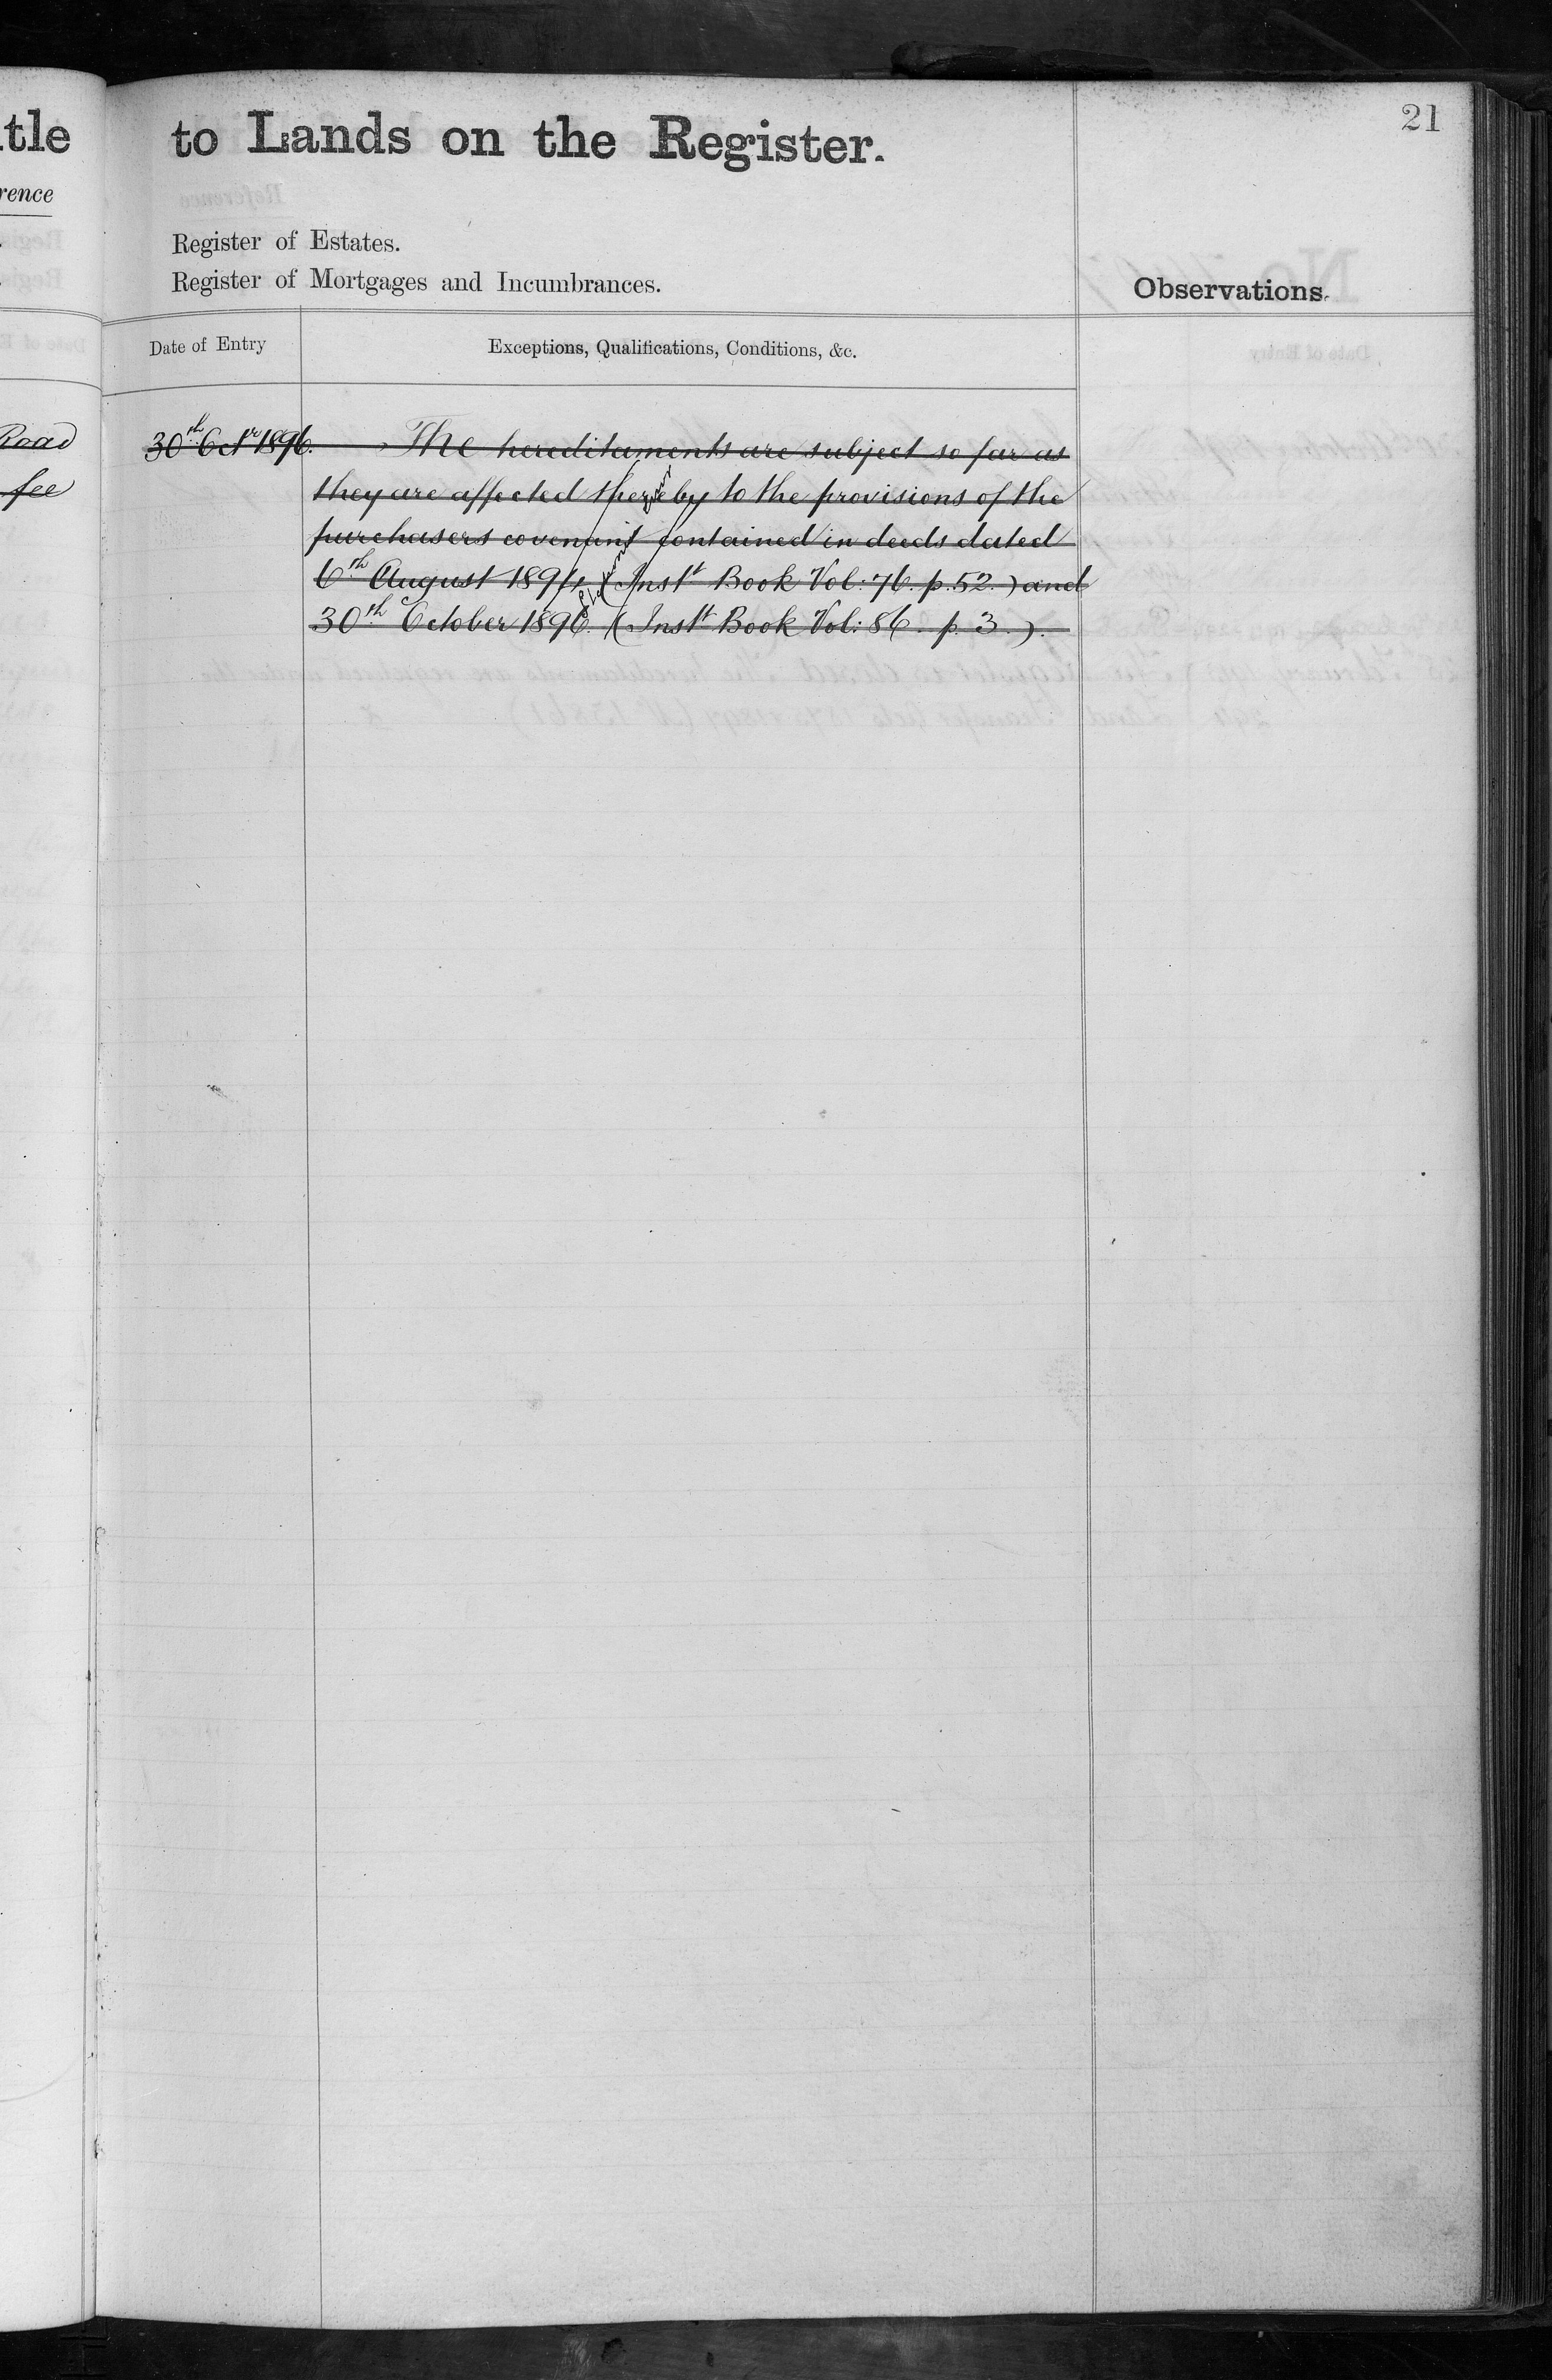 tle to Lands on the Register.
21
rence
Register of Estates.
Register of Mortgages and Incumbrances.
Observations.
Date of Entry
Exceptions, Qualifications, Conditions, &c.
Road
fee
30th Octr 1896.
The hereditaments are subject so far as
they are affected thereby to the provisions of the
purchasers covenant contained in deeds dated
6th August 1894 (Instt Book Vol: 76. p. 52.) and
30th October 1896. (Instt Book Vol: 86. p. 3.).